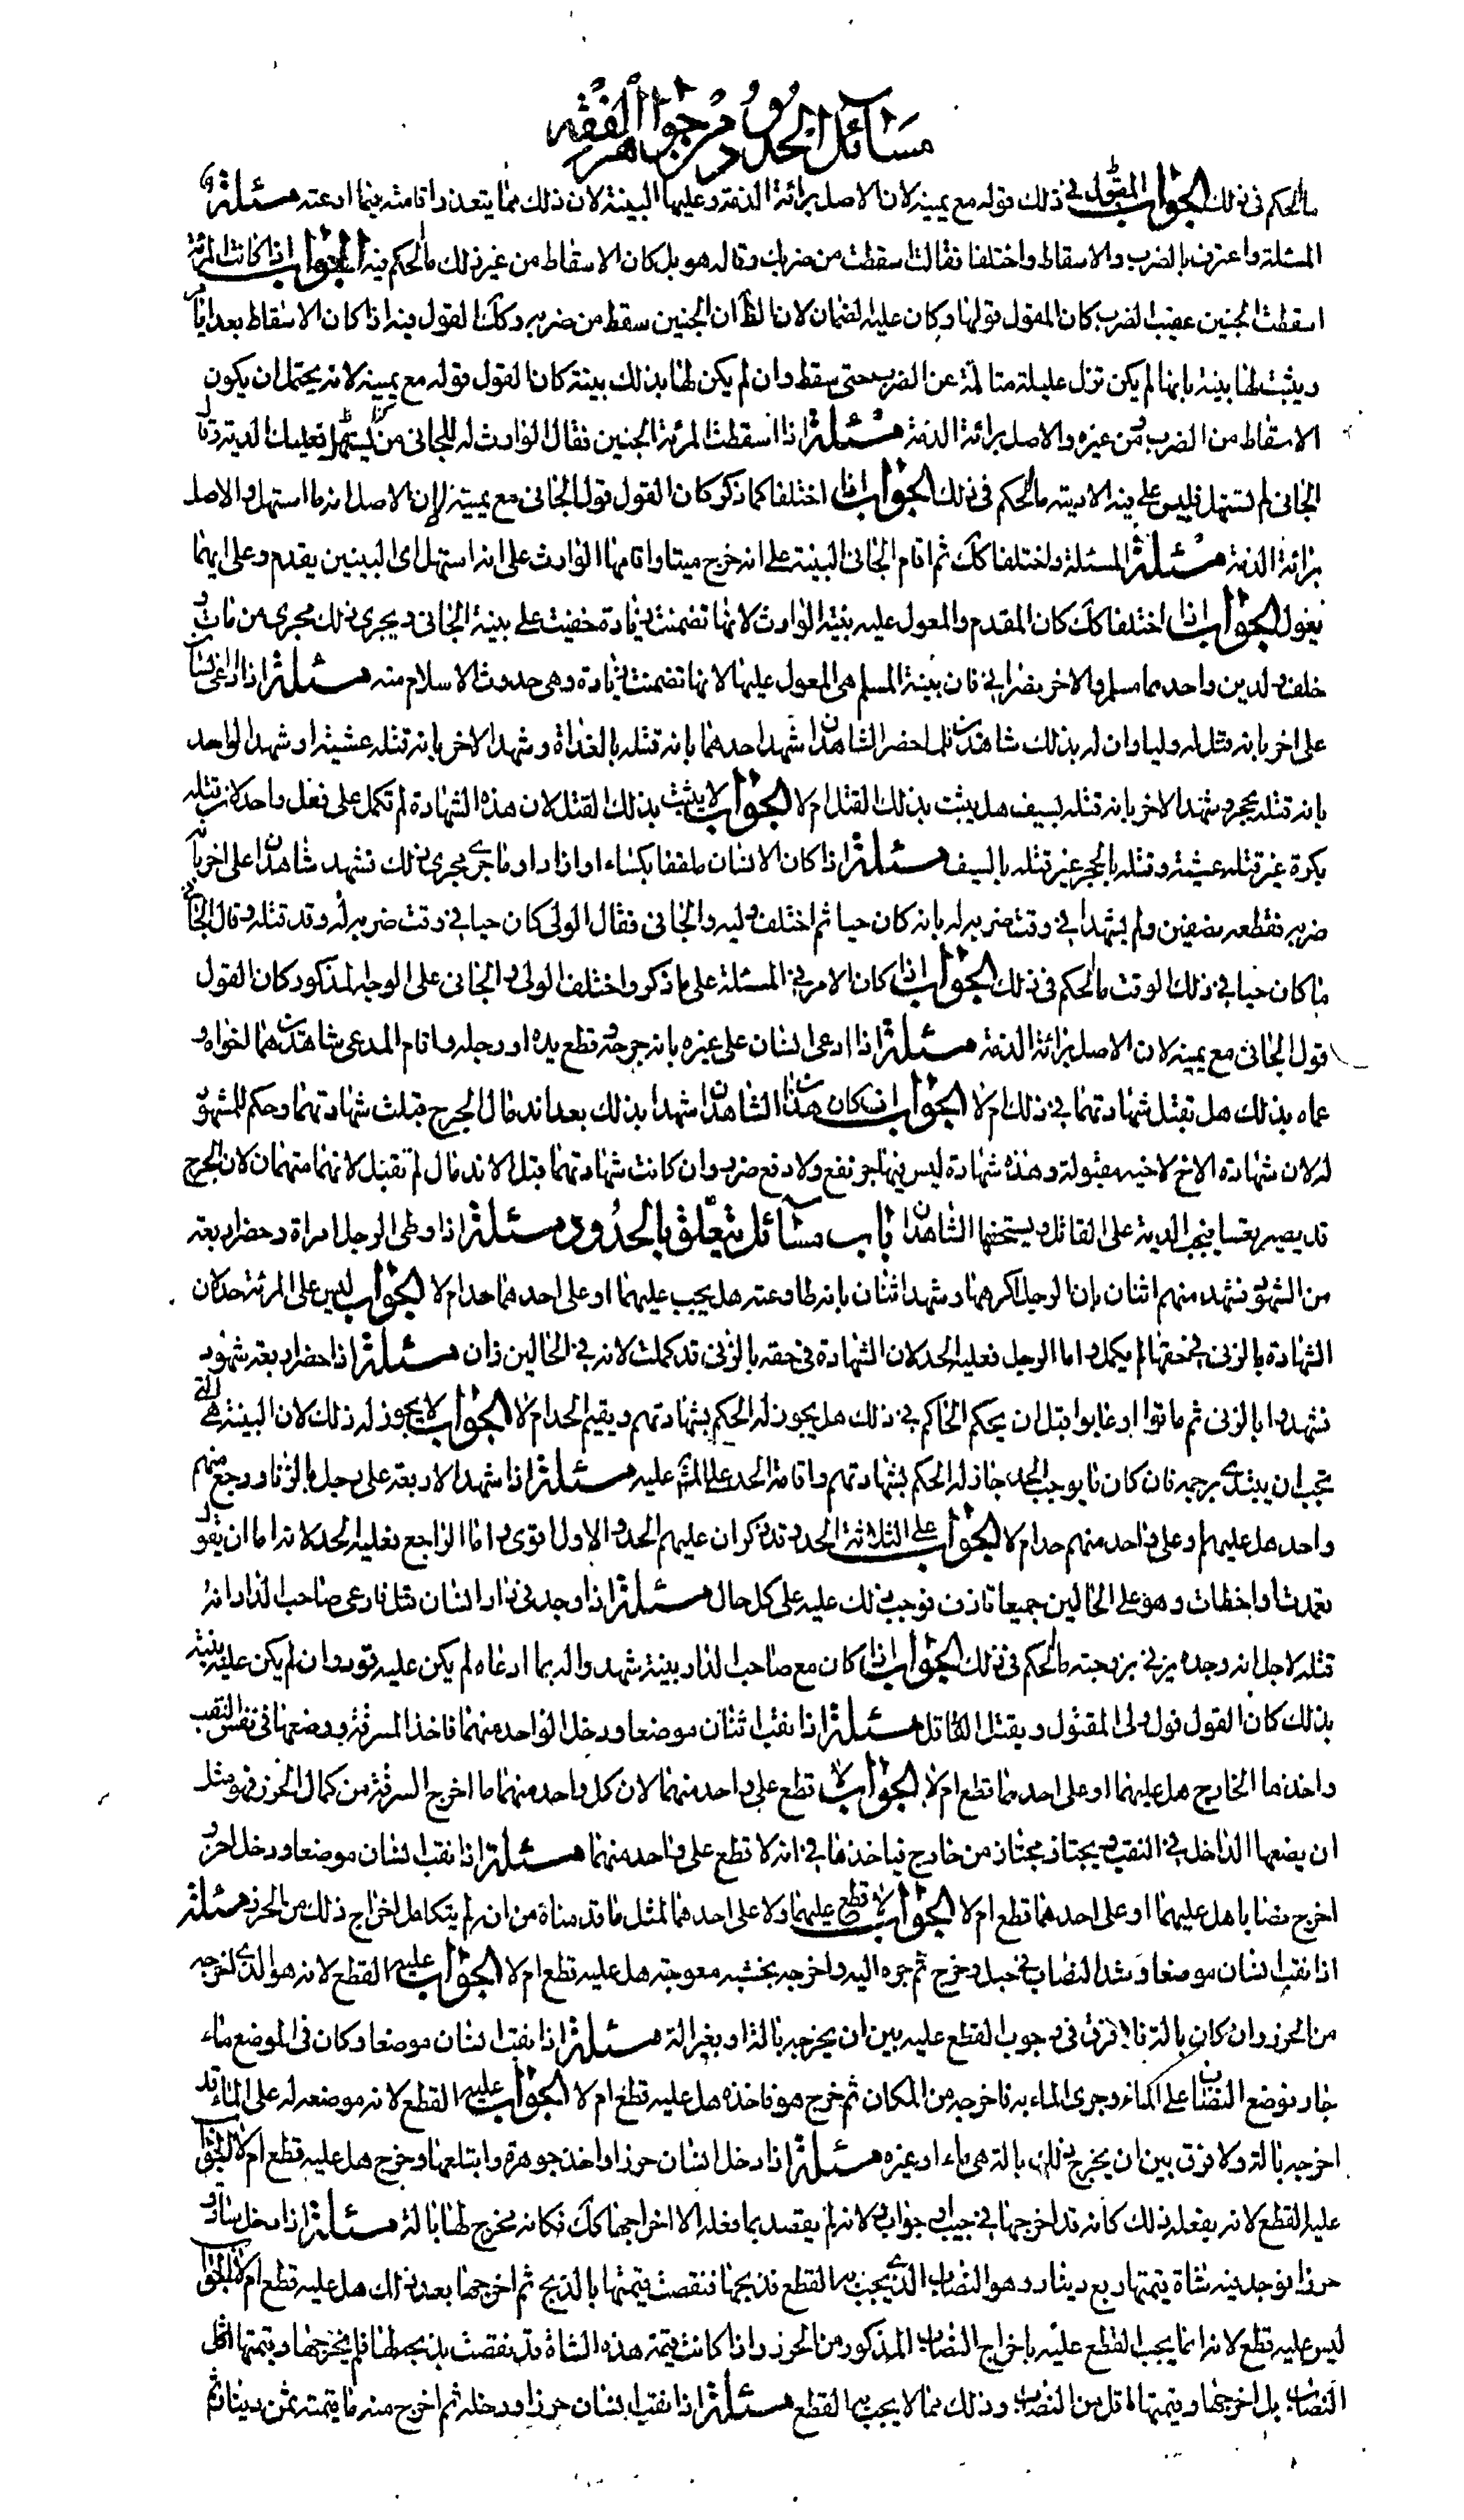 مسائل الحدود من جواهر الفقه
ما الحكم في ذلك الجواب القول في ذلك قوله مع يمينه لان الاصل برائة الذمة وعليها البينة لان ذلك مما يتعذر اقامته فيما ادعته مسئلة
المسئلة واعترف بالضرب والاسقاط واختلفا فقالت سقطت من ضربك وقال هو بل كان الاسقاط من غير ذلك ما الحكم فيه الجواب اذا كانت المرئة
اسقطت الجنين عقيب الضرب كان القول قولها وكان عليه الضمان لان الظ ان الجنين سقط من ضربه وكك القول فيه اذا كان الاسقاط بعد ايام
ويثبت لها بينة بانها لم يكن تزل عليلة متالمة عن الضرب حتى سقط وان لم يكن لها بذلك بينة كان القول قوله مع يمينه لانه يحتمل ان يكون
الاسقاط من الضرب ومن غيره والاصل برائة الذمة مسئلة اذا اسقطت المرئة الجنين فقال الوارث له للجاني استهل فعليك الدية وقال
الجاني لم يستهل فليس علي فيه الا ديته ما الحكم في ذلك الجواب اذا اختلفا كما ذكر كان القول قول الجاني مع يمينه لان الاصل انه ما استهل والاصل
برائة الذمة مسئلة المسئلة واختلفا كك ثم اقام الجاني البينة على انه خرج ميتا واقامها الوارث على انه استهل اي البينين يقدم وعلى ايهما
يعول الجواب اذا اختلفا كك كان المقدم والمعول عليه بينة الوارث لانها تضمنت زيادة خفيت على بينة الجاني ويجري ذلك مجرى من مات و
خلف ولدين واحدهما مسلم والاخر نصراني فان بينة المسلم هي المعول عليها لانها تضمنت زيادة وهي حدوث الاسلام منه مسئلة اذا ادعى انسان
على اخر بانه قتل له وليا وان له بذلك شاهدين فلما حضر الشاهدان شهد احدهما بانه قتله بالغداة وشهد الاخر بانه قتله عشية او شهد الواحد
بانه قتله بحجر وشهد الاخر بانه قتله بسيف هل يثبت بذلك القتل ام لا الجواب لا يثبت بذلك القتل لان هذه الشهادة لم تكمل على فعل واحد لان قتله
بكرة غير قتله عشية وقتله بالحجر غير قتله بالسيف مسئلة اذا كان الانسان ملففا بكساء او ازار او ما جرى مجرى ذلك فشهد شاهدان على اخر بانه
ضربه فقطعه نصفين ولم يشهدا في وقت ضربه له بانه كان حيا ثم اختلف وليه والجاني فقال الولي كان حيا في وقت ضربه له وقد قتله وقال الجاني
ما كان حيا في ذلك الوقت ما الحكم في ذلك الجواب اذا كان الامر في المسئلة على ما ذكر واختلف الولي والجاني على الوجه المذكور كان القول
قول الجاني مع يمينه لان الاصل برائة الذمة مسئلة اذا ادعى انسان على غيره بانه جرحه وقطع يده او رجله واقام المدعي شاهدين هما اخواه او
عماه بذلك هل تقبل شهادتهما في ذلك ام لا الجواب ان كان هذان الشاهدان شهدا بذلك بعد اندمال الجرح قبلت شهادتهما وحكم للمشهود
له لان شهادة الاخ لاخيه مقبولة وهذه شهادة ليس فيها جر نفع ولا دفع ضرر وان كانت شهادتهما قبل الاندمال لم تقبل لانهما متهمان لان الجرح
قد يصير نفسا فيجب الدية على القاتل ويستحقها الشاهدان باب مسائل تتعلق بالحدود مسئلة اذا وطى الرجل امراة وحضر اربعة
من الشهود فشهد منهم اثنان بان الرجل اكرهها وشهد اثنان بانه طاوعته هل يجب عليهما او على احدهما حد ام لا الجواب ليس على المرئة حد لان
الشهادة بالزنى في حقها لم يكمل واما الرجل فعليه الحد لان الشهادة في حقه بالزنى قد كملت لانه في الحالين زان مسئلة اذا حضر اربعة شهود
فشهدوا بالزنى ثم ماتوا او غابوا قبل ان يحكم الحاكم في ذلك هل يجوز له الحكم بشهادتهم ويقيم الحد ام لا الجواب لا يجوز له ذلك لان البينة هي التي
يجب ان يبتدى برجمه فان كان ما يوجب الحد جاز له الحكم بشهادتهم واقامة الحد على المش عليه مسئلة اذا شهد الاربعة على رجل بالزنا ورجع منهم
واحد هل عليهم وعلى واحد منهم حد ام لا الجواب على الثلاثة الحد وقد ذكر ان عليهم الحد والاول اقوى واما الراجع فعليه الحد لانه اما ان يقول
تعمدت او اخطات وهو على الحالين جميعا قاذف فوجب ذلك عليه على كل حال مسئلة اذا وجد في دار انسان قتل فادعى صاحب الدار انه
قتله لاجل انه وجده يزني بزوجته ما الحكم في ذلك الجواب اذا كان مع صاحب الدار بينة شهد واله بما ادعاه لم يكن عليه قود وان لم يكن عليه بينة
بذلك كان القول قول ولي المقتول ويقتل القاتل مسئلة اذا نقب اثنان موضعا ودخل الواحد منهما فاخذ السرقة ووضعها في نفس النقب
واخذها الخارج هل عليهما او على احدهما قطع ام لا الجواب لا قطع على واحد منهما لان كل واحد منهما ما اخرج السرقة من كمال الحرز فهو مثل
ان يضعها الداخل في النقب ويجتاز مجتاز من خارج فياخذها في انه لا قطع على واحد منهما مسئلة اذا نقب انسان موضعا ودخل اخر و
اخرج نصابا هل عليهما او على احدهما قطع ام لا الجواب لا قطع عليهما ولا على احدهما لمثل ما قدمناه من انه لم يتكامل اخراج ذلك من الحرز مسئلة
اذا نقب انسان موضعا وشد النصاب في حبل وخرج ثم جره اليه واخرجه بخشبه معوجة هل عليه قطع ام لا الجواب عليه القطع لانه هو الذي اخرجه
من الحرز وان كان بالة فلا فرق في وجوب القطع عليه بين ان يخرجه بالة او بغير الة مسئلة اذا نقب انسان موضعا وكان في الموضع ماء
جار فوضع النصاب على الماء وجرى الماء به فاخرجه من المكان ثم خرج هو فاخذه هل عليه قطع ام لا الجواب عليه القطع لانه موضعه له على الماء قد
اخرجه بالة ولا فرق بين ان يخرج ذلك بالة هي ماء او غيره مسئلة اذا دخل انسان حرزا واخذ جوهرة وابتلعها وخرج هل عليه قطع ام لا الجواب
عليه القطع لانه بفعله ذلك كانه قد اخرجها في جيب او جراب لانه لم يقصد بما فعله الا اخراجها كك فكانه مخرج لها بالة مسئلة اذا دخل سارق
حرزا فوجد فيه شاة قيمتها ربع دينار وهو النصاب الذي يجب به القطع فذبحها فنقصت قيمتها بالذبح ثم اخرجها بعد ذلك هل عليه قطع ام لا الجواب
ليس عليه قطع لانه انما يجب القطع عليه باخراج النصاب المذكور من الحرز واذا كانت قيمة هذه الشاة قد نقصت بذبحه لها فلم يخرجها وقيمتها اكمل
النصاب بل اخرجها وقيمتها اقل من النصاب وذلك مما لا يجب به القطع مسئلة اذا نقب انسان حرزا ودخله ثم اخرج منه ما قيمته ثمن دينار ثم